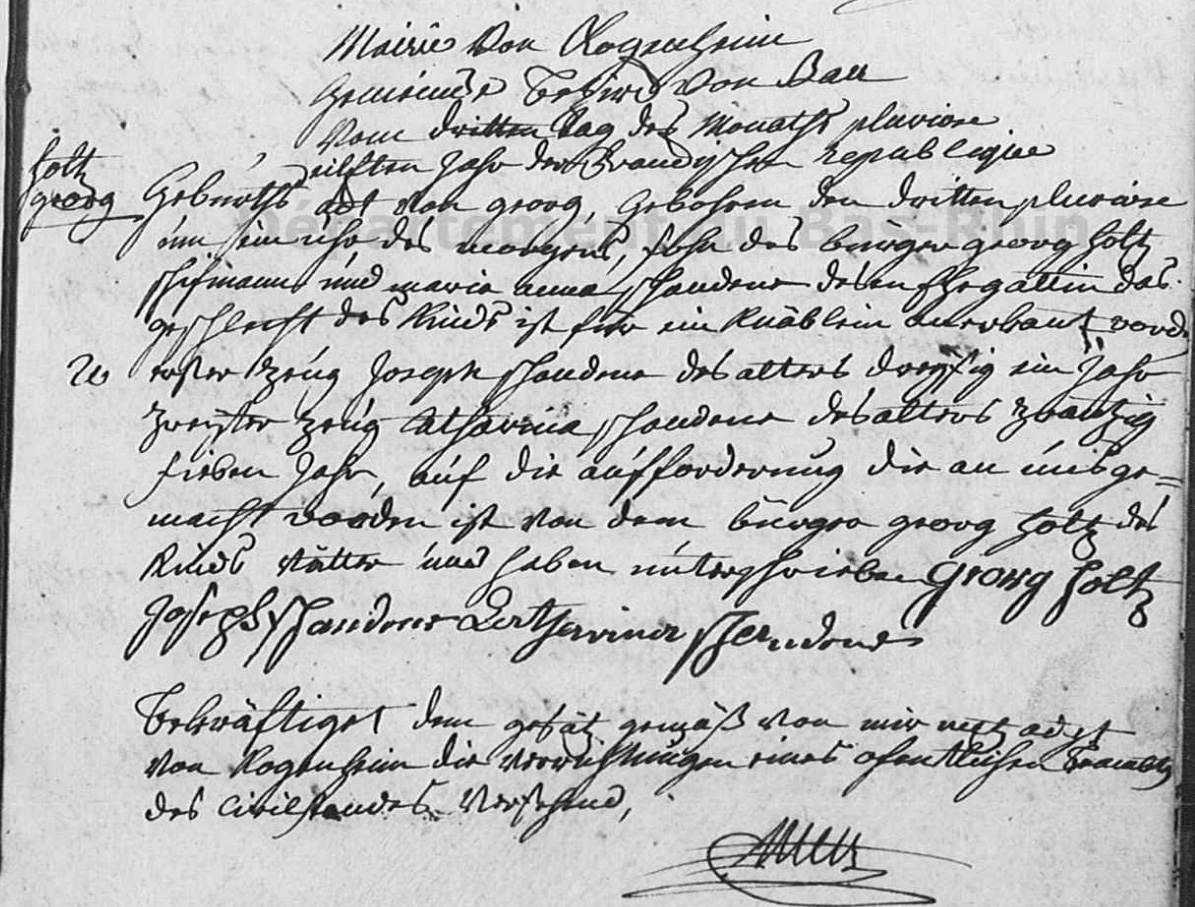 Mairie von Kogenheim
Gemeinde Bezirck von Barr
Vom dritten Tag des Monaths pluviose
eilften Jahr der Französischen Republique
holtz
georg
Geburths act von georg, gebohren den dritten pluviose
um ein uhr des morgens, sohn des burger georg holtz
schifmann und maria anna schandene desen Ehegattin das
geschlecht des Kinds ist für ein Knäblein anerkant word.
20 erster Zeüg Joseph schandene des alters dreyssig ein Jahr
Zweyter Zeüg Catharina schandene des alters zwantzig
sieben Jahr, auf die aufforderung die an uns ge=
macht worden ist von dem bürger georg holtz des
Kinds Vatter und haben unterschrieben Georg holtz
Joseph schandene Catharina schandene
Bekräftiget dem gesätz gemäß von mir
von Kogenheim die verrichtungen eines ofentlichen Beambten
des Civilstandes versehend,
Département du Bas-Rhin